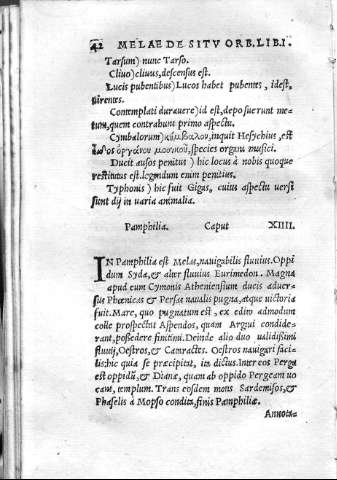 42 MELAE DE SITV ORB. LIB. I.
Tarsum) nunc Tarso.
Cliuo) cliuus, descensus est.
Lucis pubentibus) Lucos habet pubentes, idest,
uirentes.
Contemplati durauere) id est, deposuerunt me-
tum, quem contrahunt primo aspectu.
Cymbalorum) κύμβαλον, inquit Hesychius, est
εἶδος ὀργάνου μουσικοῦ, species organi musici.
Ducit ausos penitus) hic locus à nobis quoque
restitutus est. legendum enim penitius.
Typhonis) hic fuit Gigas, cuius aspectu uersi
sunt dij in uaria animalia.
Pamphilia. Caput XIIII.
IN Pamphilia est Melas, nauigabilis fluuius. Oppi
dum Syda, & alter fluuius Eurimedon. Magna
apud eum Cymonis Atheniensium ducis aduer-
sus Phœnicas & Persas naualis pugna, atque uictoria
fuit. Mare, quo pugnatum est, ex edito admodum
colle prospectat Aspendos, quam Argui condide-
rant, possedere finitimi. Deinde alio duo ualidißimi
fluuij, Oestros, & Camractes. Oestros nauigari faci-
lis: hic quia se præcipitat, ita dictus. Inter eos Perga
est oppidū, & Dianæ, quam ab oppido Pergeam uo
cant, templum. Trans eosdem mons Sardemisos, &
Phaselis à Mopso condita, finis Pamphiliæ.
Annota-